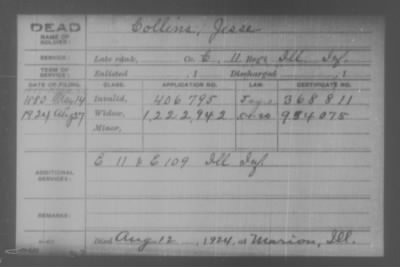 DEAD Collins, Jesse
NAME OF SOLDIER:
SERVICE: Late rank, Co. E, 11 Reg't Ill. Inf.
TERM OF SERVICE: Enlisted , 1 Discharged , 1
DATE OF FILING. CLASS. APPLICATION NO. LAW. CERTIFICATE NO.
1880 May 14 Invalid, 406795 368811
1924 Aug 27 Widow, 1,222,942 954075
Minor,
ADDITIONAL SERVICES: E 11 & E 109 Ill Inf
REMARKS:
Died Aug. 12, 1924, at Marion, Ill.